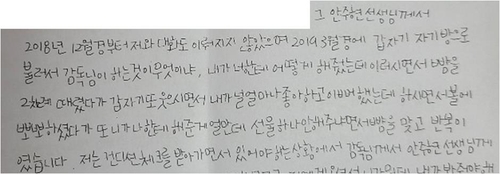 그 안주현선생님께서
2018년 12월경부터 저와 대화도 이뤄지지 않았으며 2019 3월경에 갑자기 자기방으로
불러서 감독님이 하는것이 무엇이냐, 내가 너한테 어떻게 해줬는데 이러시면서 뺨을
2차례 때렸다가 갑자기 또 웃으시면서 내가 널 얼마나 좋아하고 이뻐했는데 하시면서 볼에
뽀뽀하셨다가 또 니가 나한테 해준게 얼만데 선물하나 안해주냐면서 뺨을 맞고 반복이
였습니다. 저는 컨디션체크를 받아가면서 있어야하는 상황에서 감독님께서 안주현 선생님께